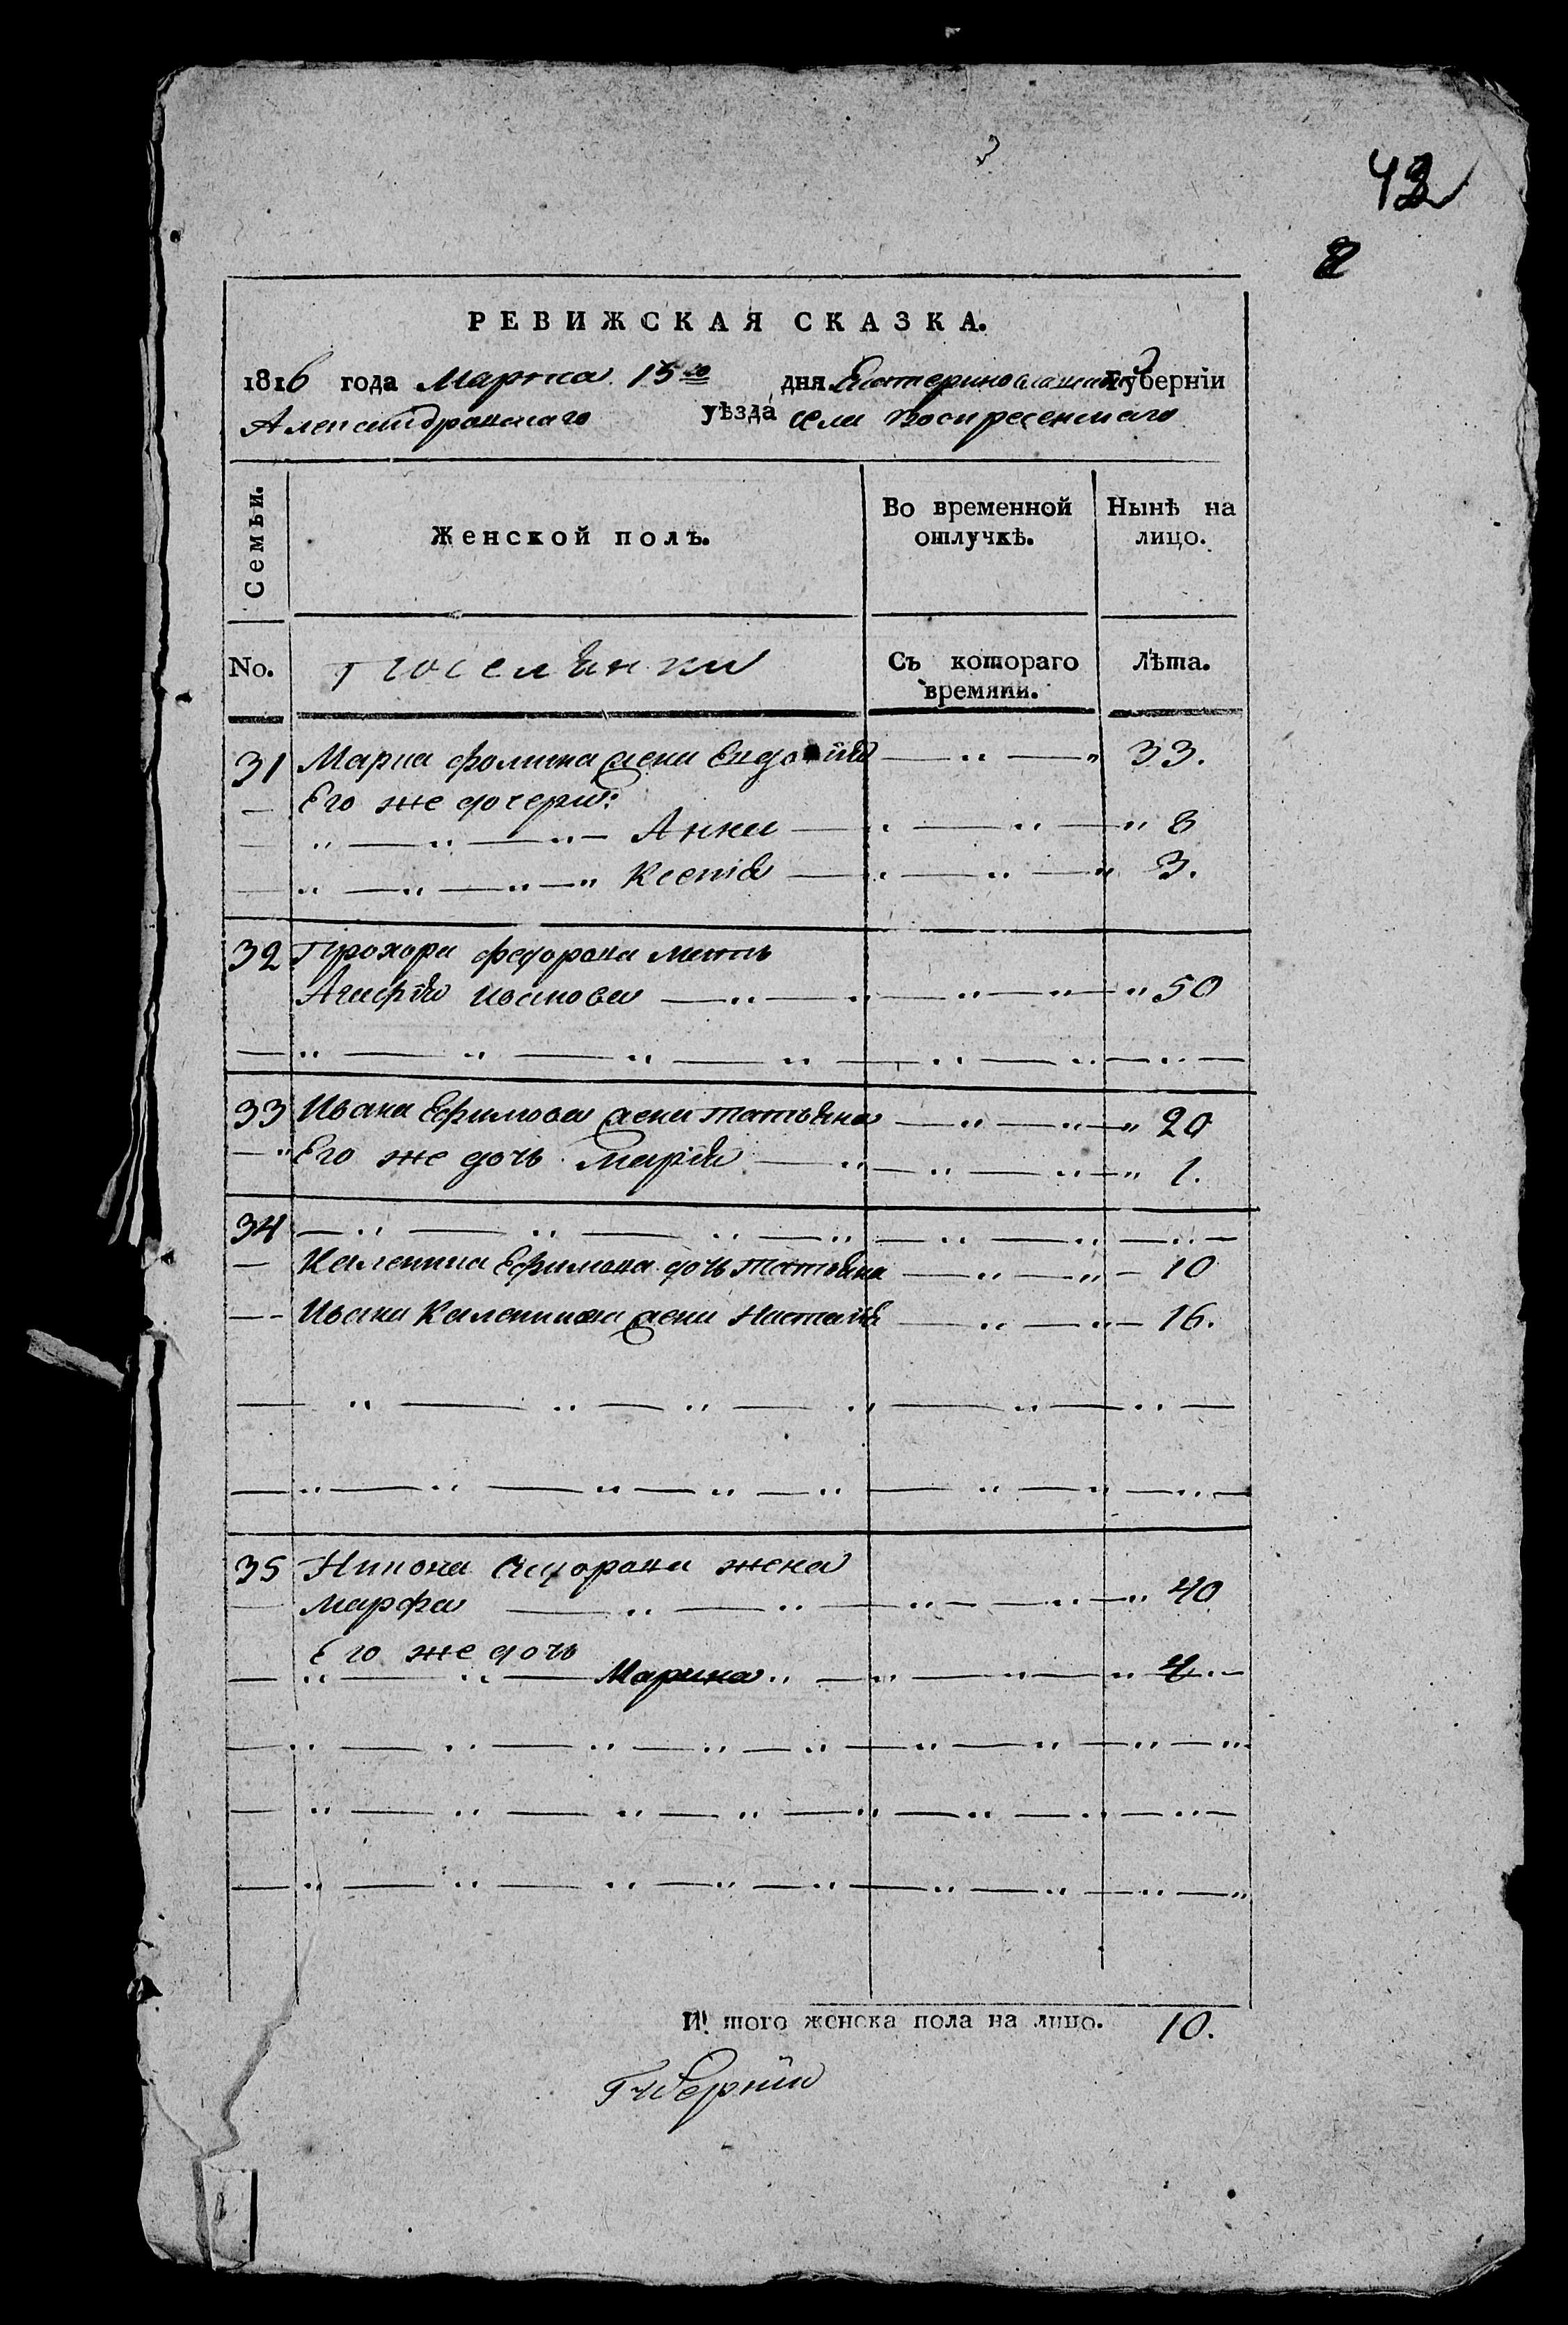 42
8
РЕВИЖСКАЯ СКАЗКА.
1816 года Марта 15го дня Екатеринославской Губерніи
Александровскаго уѣзда села Воскресенскаго
Семьи.
Женской полъ.
Во временной отлучкѣ.
Нынѣ на лицо.
No.
Поселянки
Съ котораго времяни.
Лѣта.
31 Марка Фомина жена Евдокія 33.
Его же дочери:
Анна 8
Ксенія 3.
32 Прохора Федорова мать
Агафія Иванова 50
33 Ивана Ефимова жена Татьяна 20
Его же дочь Марія 1.
34
Каленика Ефимова дочь Татьяна 10
Ивана Каленикова жена Наталія 16.
35 Никона жена
Марфа 40
Его же дочь
Марина 4
И того женска пола на лицо. 10.
Губерніи